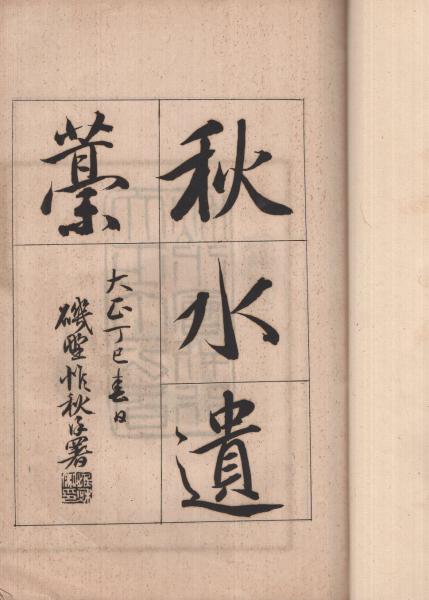 秋水遺
藁
大正丁巳春日
磯野惟秋署